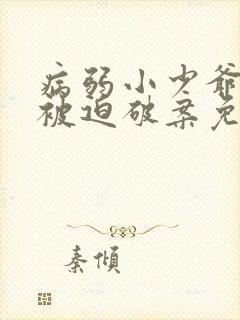 病弱小少爷
被迫破案免
秦傾